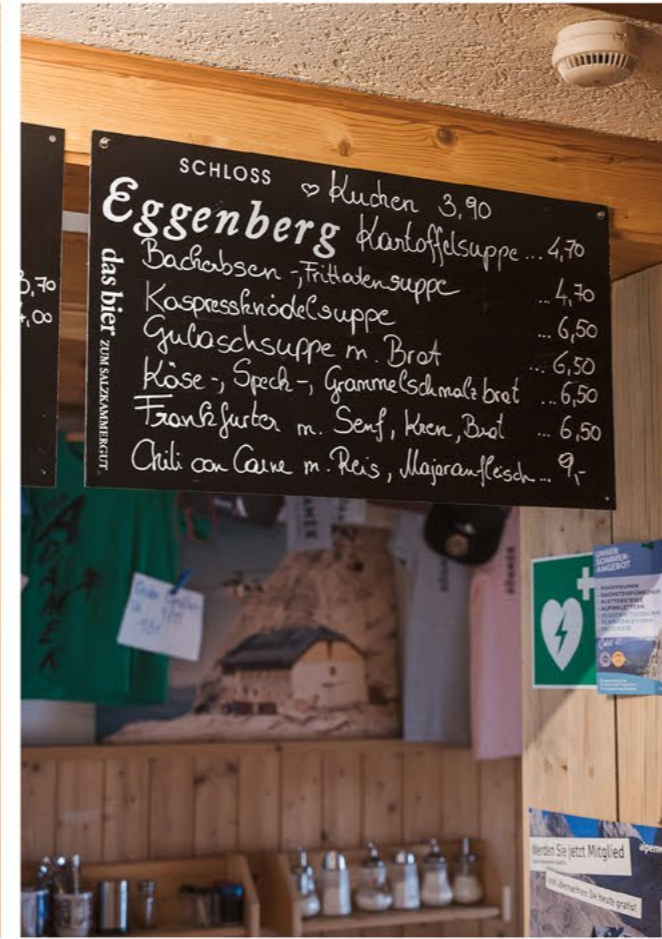 SCHLOSS
Eggenberg
das bier ZUM SALZKAMMERGUT
♡ Kuchen 3,90
Kartoffelsuppe ... 4,70
Backerbsen-, Frittatensuppe ... 4,70
Kaspressknödelsuppe ... 6,50
Gulaschsuppe m. Brot ... 6,50
Käse-, Speck-, Grammelschmalzbrot ... 6,50
Frankfurter m. Senf, Kren, Brot ... 6,50
Chili con Carne m. Reis, Majoranfleisch ... 9,-
,70
,00
ADAMEK
UNSER
SOMMER-
ANGEBOT
Werden Sie jetzt Mitglied
und übernachten Sie heute gratis!